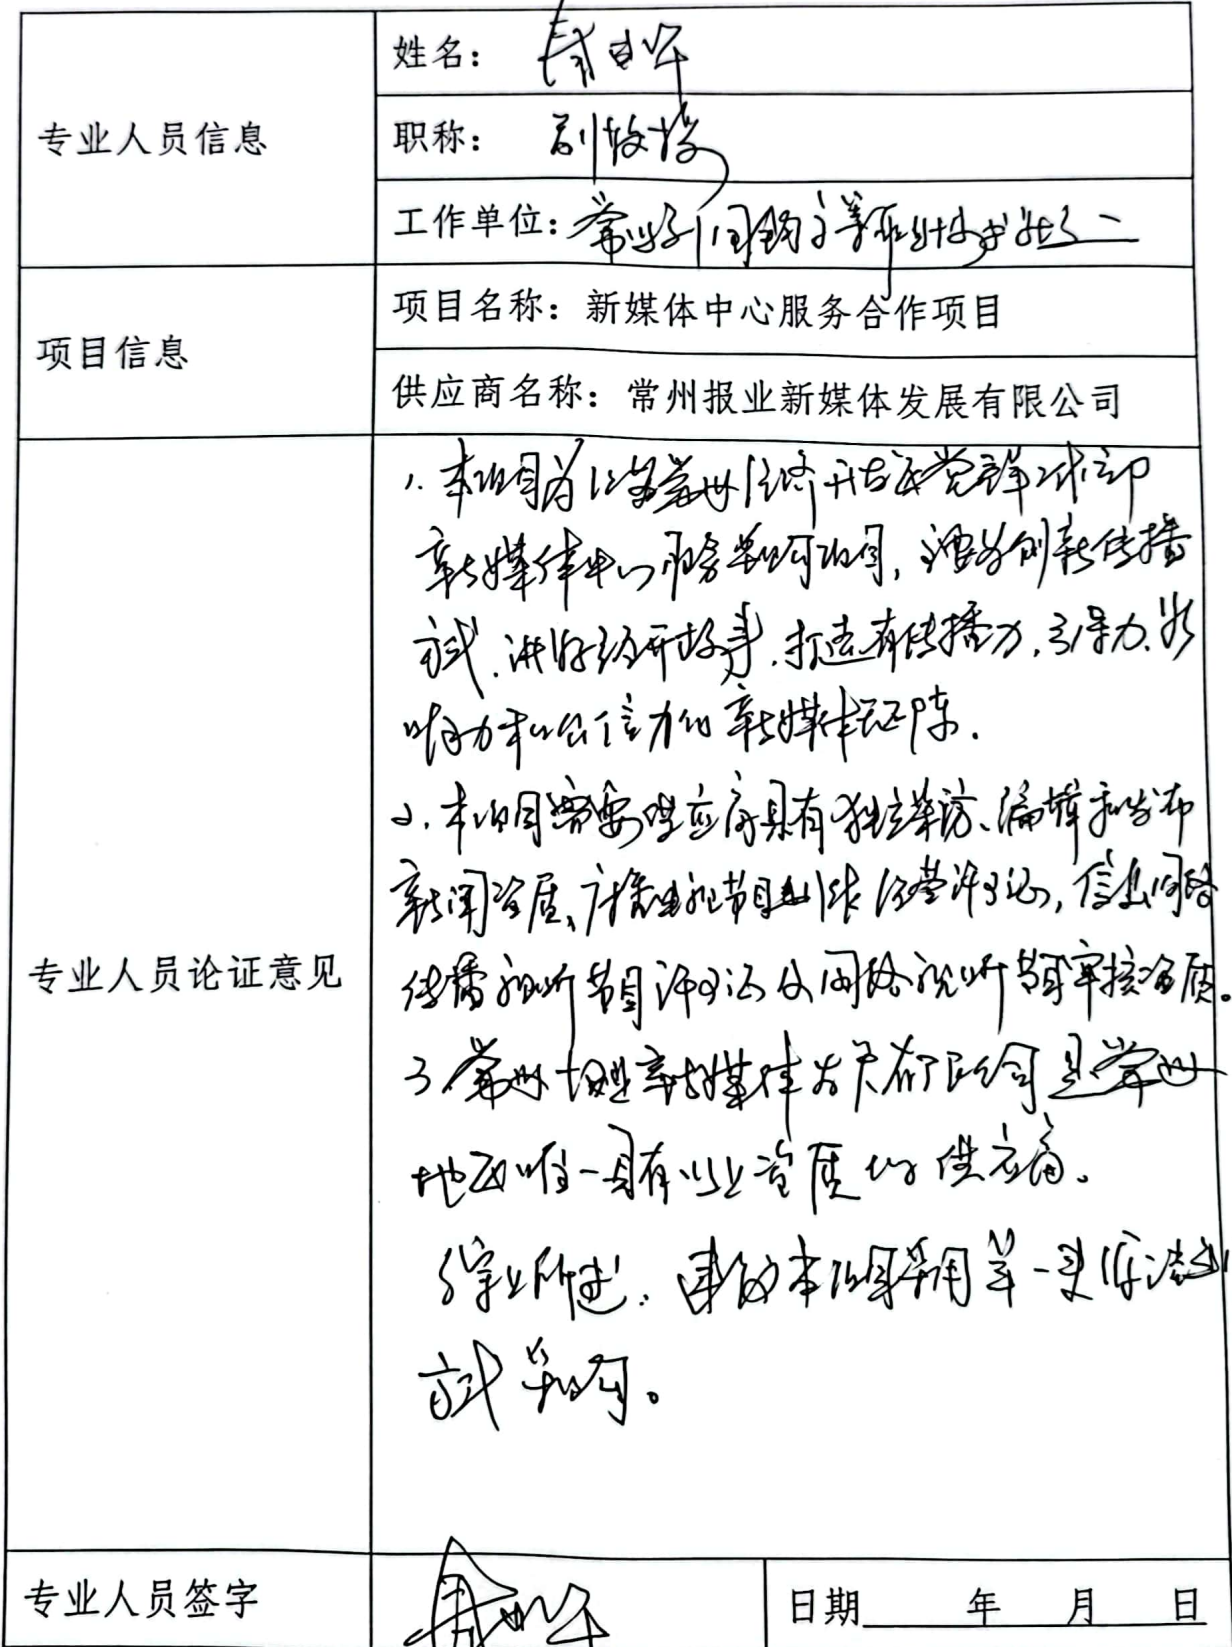 专业人员信息
姓名：
职称：副教授
工作单位：常州纺织服装职业技术学院
项目信息
项目名称：新媒体中心服务合作项目
供应商名称：常州报业新媒体发展有限公司
专业人员论证意见
1. 本项目为江苏常州经济开发区党群工作部
新媒体中心服务采购项目，主要为创新传播
方式、讲好经开故事，打造有传播力、引导力、影
响力和公信力的新媒体矩阵。
2. 本项目需要供应商具有独立采访、编辑和发布
新闻资质、广播电视节目制作经营许可证，信息网络
传播视听节目许可证及网络视听节目审核资质。
3 常州报业新媒体发展有限公司是常州
地区唯一具有以上资质的供应商。
综上所述：建议本项目采用单一来源采购
方式采购。
专业人员签字
日期 年 月 日